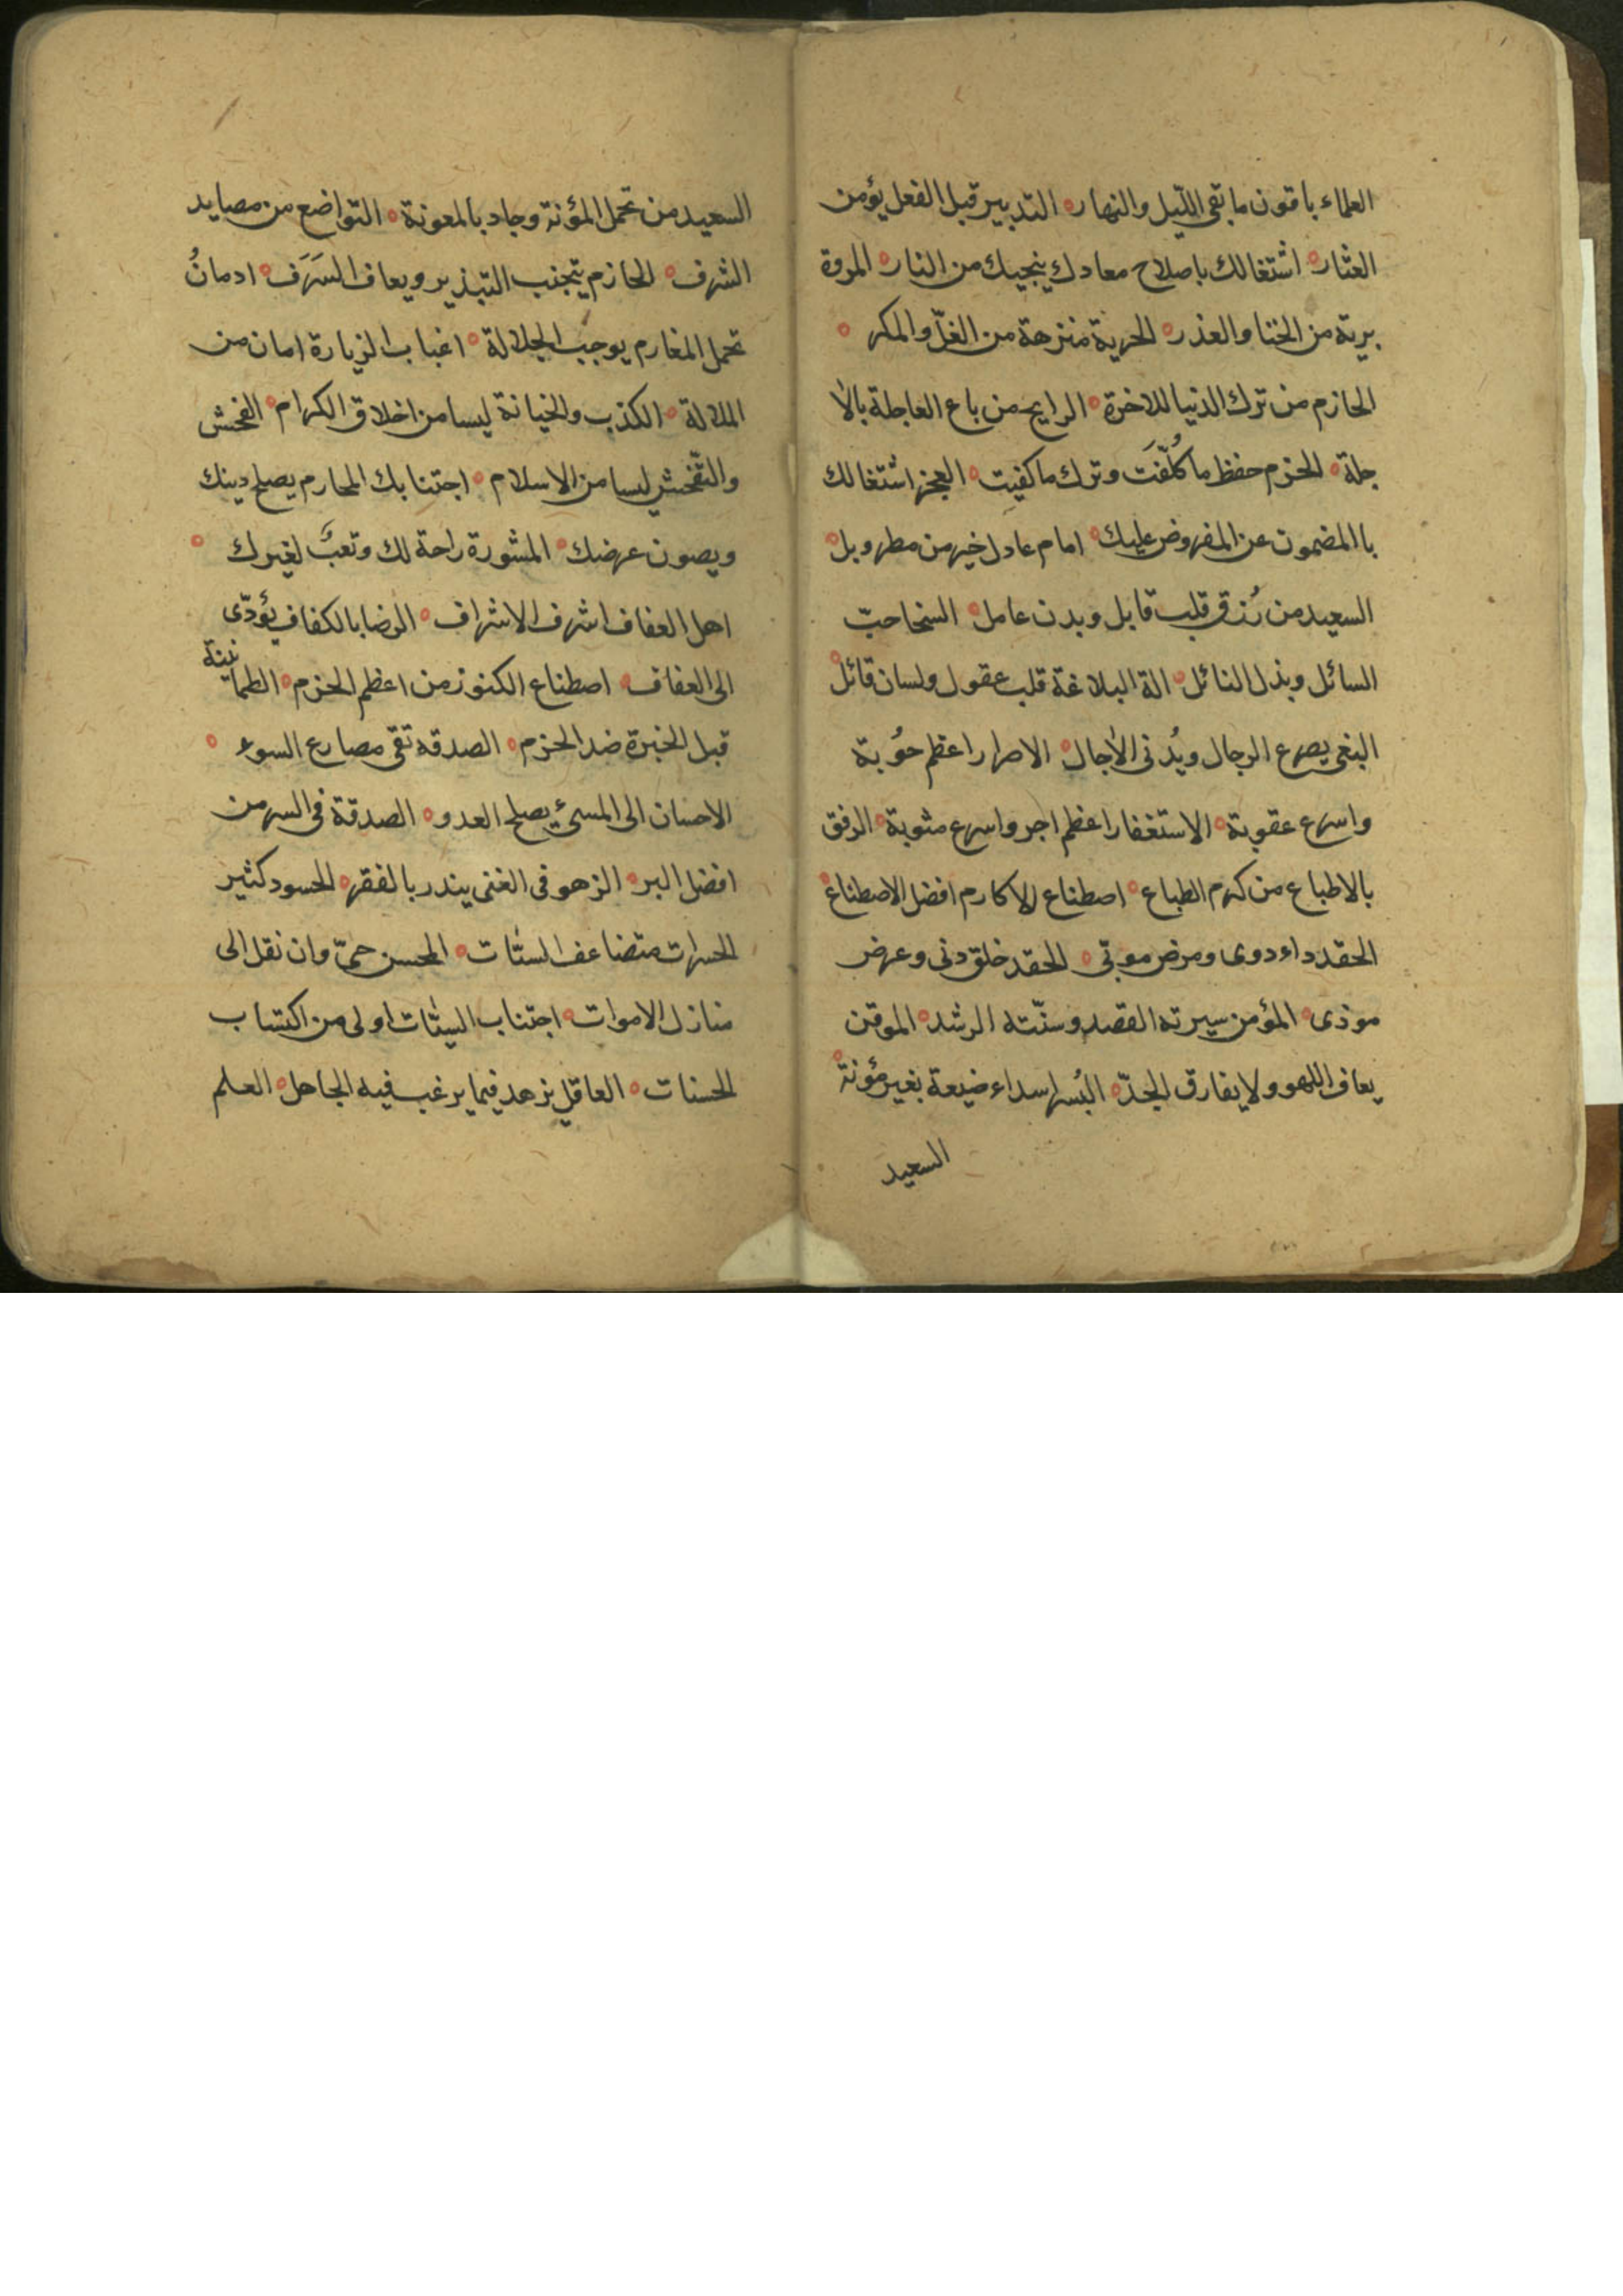 العلماء باقون ما بقى اللّيل والنهار ه التدبير قبل الفعل يؤمن
العثار ه اشتغالك باصلاح معادك ينجيك من النار ه المروة
برية من الخنا والغدر ه الحرية منزهة من الغلّ والمكر ه
الحازم من ترك الدنيا للاخرة ه الرابح من باع العاجلة بالا
جلة ه الحزم حفظ ما كُلّفتَ وترك ما كفيت ه العجز اشتغالك
باالمضمون عن المفروض عليك ه امام عادل خير من مطر وبل ه
السعيد من رُزق قلب قابل وبدن عامل ه السخا حبّ
السائل وبذل النائل ه الة البلاغة قلب عقول ولسان قائل ه
البغى يصرع الرجال ويُدنى الاجال ه الاصرار اعظم حوُبة
واسرع عقوبة ه الاستغفار اعظم اجر واسرع مثوبة ه الرفق
بالاطباع من كرم الطباع ه اصطناع الاكارم افضل الاصطناع ه
الحقد داء دوى ومرض موبّى ه الحقد خلق دنى وعرض
موذى ه المؤمن سيرته القصد وسنّته الرشد ه الموقن
يعاف اللهو ولا يفارق الجدّ ه البُسر اسداء ضيعة بغير مؤنة ه
السعيد
السعيد من تحمل المؤنة وجاد بالمعونة ه التواضع من مصايد
الشرف ه الحازم يتجنب التبذير ويعاف السَرَف ه ادمانُ
تحمل المغارم يوجب الجلالة ه اغباب الزيارة امان من
الملالة ه الكذب والخيانة ليسا من اخلاق الكرام ه الفحش
والتّفحش ليسا من الاسلام ه اجتنابك المحارم يصلح دينك
ويصون عرضك ه المشورة راحة لك وتعبٌ لغيرك ه
اهل العفاف اشرف الاشراف ه الرضا بالكفاف يؤدّى
الى العفاف ه اصطناع الكنوز من اعظم الحزم ه الطمانينة
قبل الخبرة ضد الحزم ه الصدقه تقى مصارع السوء ه
الاحسان الى المسئ يصلح العدو ه الصدقة فى السر من
افضل البر ه الزهو فى الغنى يندر بالفقر ه الحسود كثير
الحسرات متضاعف السئات ه المحسن حىّ وان نقل الى
منازل الاموات ه اجتناب السيئات اولى من اكتساب
الحسنات ه العاقل يزهد فيما يرغب فيه الجاهل ه العلم